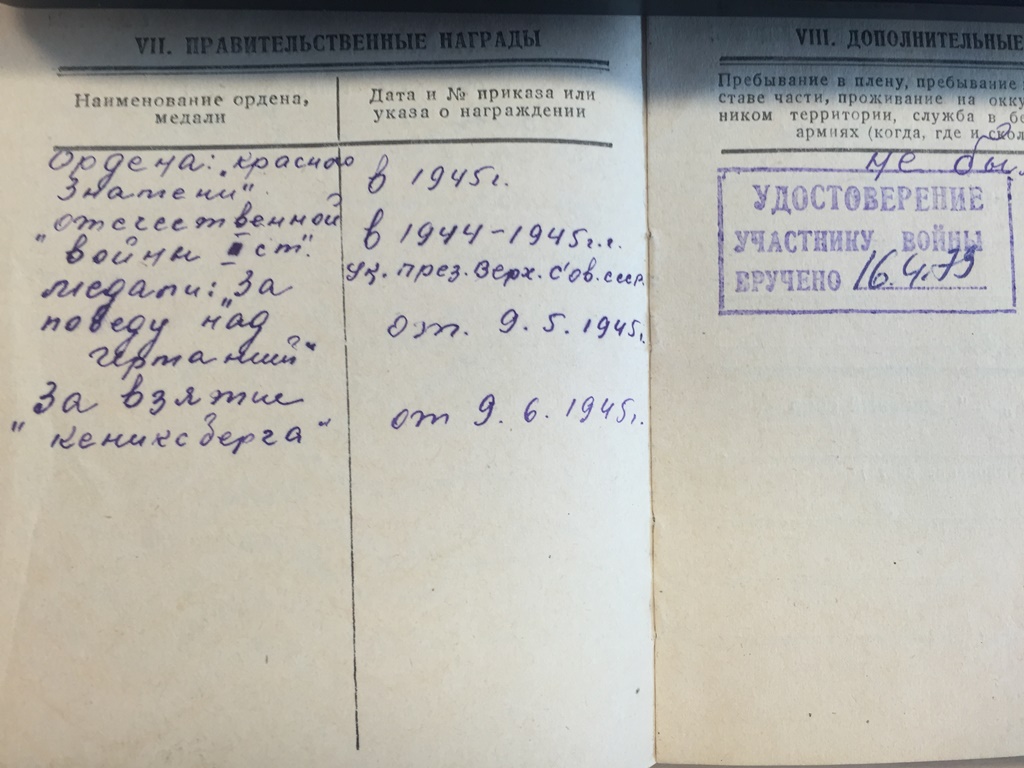 VII. ПРАВИТЕЛЬСТВЕННЫЕ НАГРАДЫ
Наименование ордена,
медали
Дата и № приказа или
указа о награждении
Ордена: „красного
Знамени"
в 1945г.
отечественной
"войны I ст".
в 1944-1945г.г.
Ук. през. Верх. Сов. ссср.
медали: „За
победу над
германией"
от 9.5.1945г.
За взятие
"кениксберга"
от 9.6.1945г.
VIII. ДОПОЛНИТЕЛЬНЫЕ
Пребывание в плену, пребывание
ставе части, проживание на окку
ником территории, служба в бе
армиях (когда, где и скол
не бы
УДОСТОВЕРЕНИЕ
УЧАСТНИКУ ВОЙНЫ
ВРУЧЕНО 16.4.79